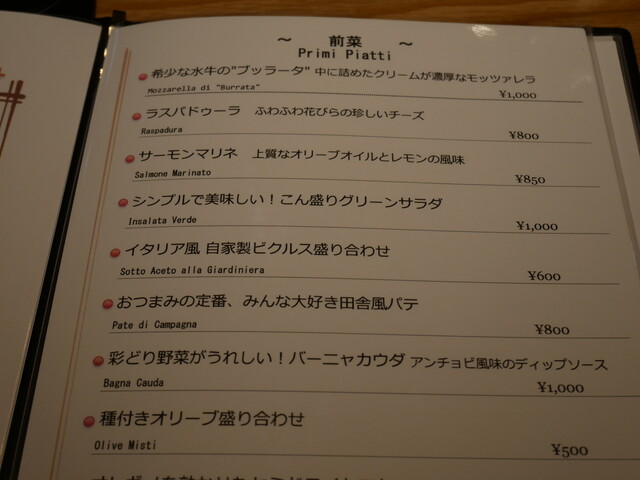 ～ 前菜 ～
Primi Piatti
希少な水牛の"ブッラータ" 中に詰めたクリームが濃厚なモッツァレラ
Mozzarella di "Burrata"
¥1,000
ラスパドゥーラ ふわふわ花びらの珍しいチーズ
Raspadura
¥800
サーモンマリネ 上質なオリーブオイルとレモンの風味
Salmone Marinato
¥850
シンプルで美味しい！こん盛りグリーンサラダ
Insalata Verde
¥1,000
イタリア風 自家製ピクルス盛り合わせ
Sotto Aceto alla Giardiniera
¥600
おつまみの定番、みんな大好き田舎風パテ
Pate di Campagna
¥800
彩どり野菜がうれしい！バーニャカウダ アンチョビ風味のディップソース
Bagna Cauda
¥1,000
種付きオリーブ盛り合わせ
Olive Misti
¥500